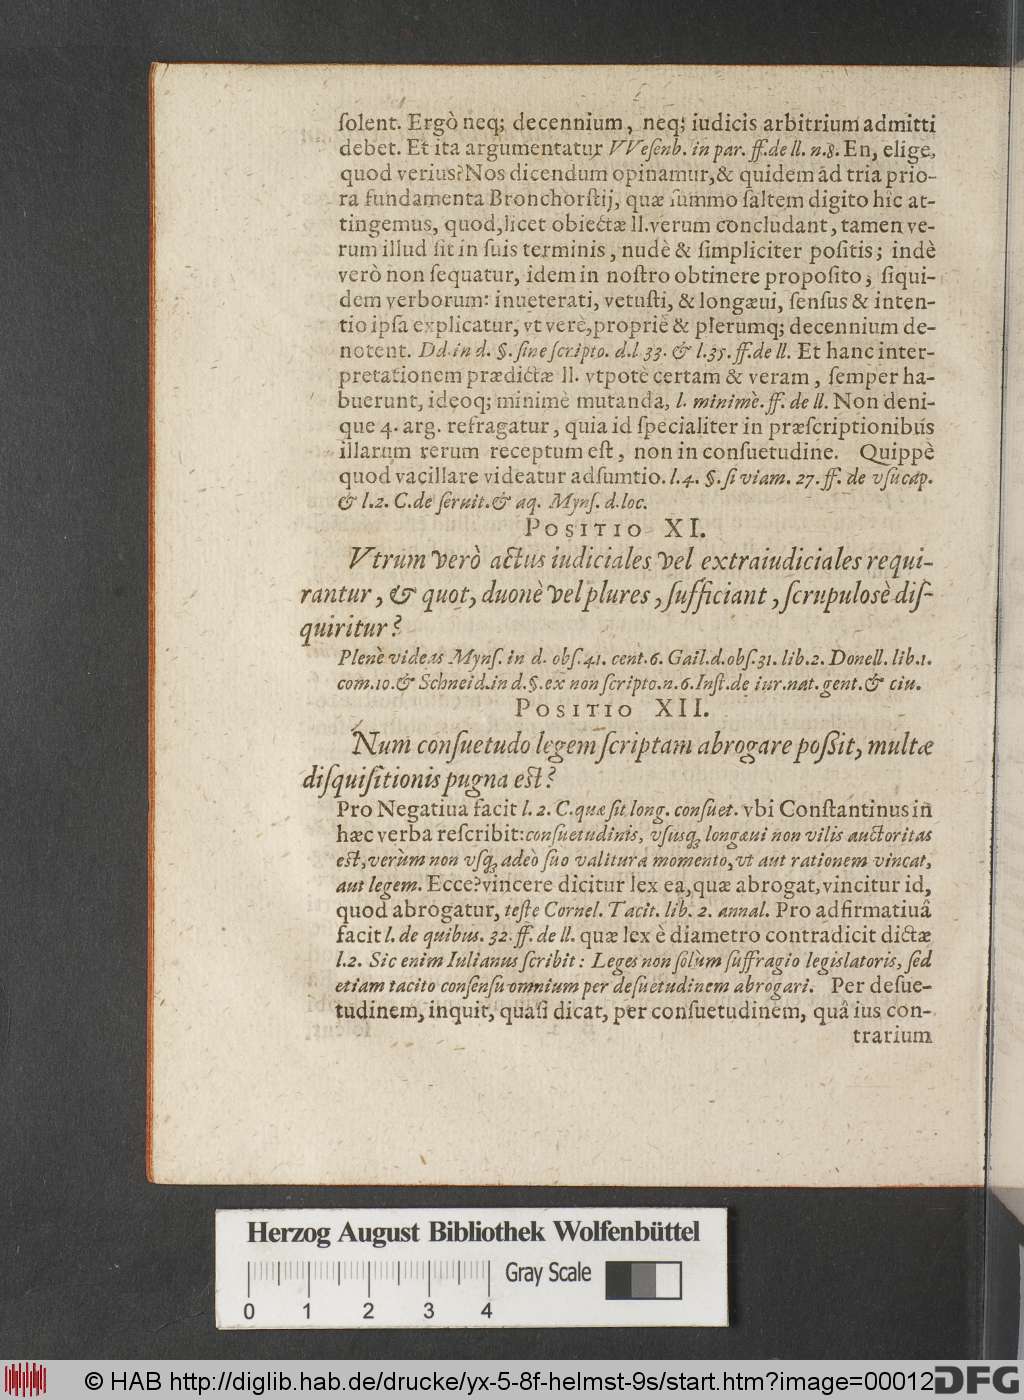 ſolent. Ergò neq; decennium, neq; iudicis arbitrium admitti
debet. Et ita argumentatur VVeſenb. in par. ff. de ll. n. 8. En, elige,
quod verius? Nos dicendum opinamur, & quidem ad tria prio-
ra fundamenta Bronchorſtij, quæ ſummo ſaltem digito hîc at-
tingemus, quod, licet obiectæ ll. verum concludant, tamen ve-
rum illud ſit in ſuis terminis, nudè & ſimpliciter poſitis; indè
verò non ſequatur, idem in noſtro obtinere propoſito, ſiqui-
dem verborum: inueterati, vetuſti, & longæui, ſenſus & inten-
tio ipſa explicatur, vt verè, propriè & plerumq; decennium de-
notent. Dd. in d. §. ſine ſcripto. d. l. 33. & l. 35. ff. de ll. Et hanc inter-
pretationem prædictæ ll. vtpotè certam & veram, ſemper ha-
buerunt, ideoq; minimè mutanda, l. minimè. ff. de ll. Non deni-
que 4. arg. refragatur, quia id ſpecialiter in præſcriptionibus
illarum rerum receptum eſt, non in conſuetudine. Quippè
quod vacillare videatur adſumtio. l. 4. §. ſi viam. 27. ff. de vſucap.
& l. 2. C. de ſeruit. & aq. Mynſ. d. loc.
POSITIO XI.
Vtrum verò actus iudiciales vel extraiudiciales requi-
rantur, & quot, duonè vel plures, ſufficiant, ſcrupulosè diſ-
quiritur?
Plenè videas Mynſ. in d. obſ. 41. cent. 6. Gail. d. obſ. 31. lib. 2. Donell. lib. 1.
com. 10. & Schneid. in d. §. ex non ſcripto. n. 6. Inſt. de iur. nat. gent. & ciu.
POSITIO XII.
Num conſuetudo legem ſcriptam abrogare poſſit, multæ
diſquiſitionis pugna eſt?
Pro Negatiua facit l. 2. C. quæ ſit long. conſuet. vbi Conſtantinus in
hæc verba reſcribit: conſuetudinis, vſusq; longæui non vilis auctoritas
eſt, verùm non vſq; adeò ſuo valitura momento, vt aut rationem vincat,
aut legem. Ecce? vincere dicitur lex ea, quæ abrogat, vincitur id,
quod abrogatur, teſte Cornel. Tacit. lib. 2. annal. Pro adfirmatiuâ
facit l. de quibus. 32. ff. de ll. quæ lex è diametro contradicit dictæ
l. 2. Sic enim Iulianus ſcribit: Leges non ſolùm ſuffragio legislatoris, ſed
etiam tacito conſenſu omnium per deſuetudinem abrogari. Per deſue-
tudinem, inquit, quaſi dicat, per conſuetudinem, quâ ius con-
trarium
Herzog August Bibliothek Wolfenbüttel
Gray Scale
0 1 2 3 4
© HAB http://diglib.hab.de/drucke/yx-5-8f-helmst-9s/start.htm?image=00012
DFG